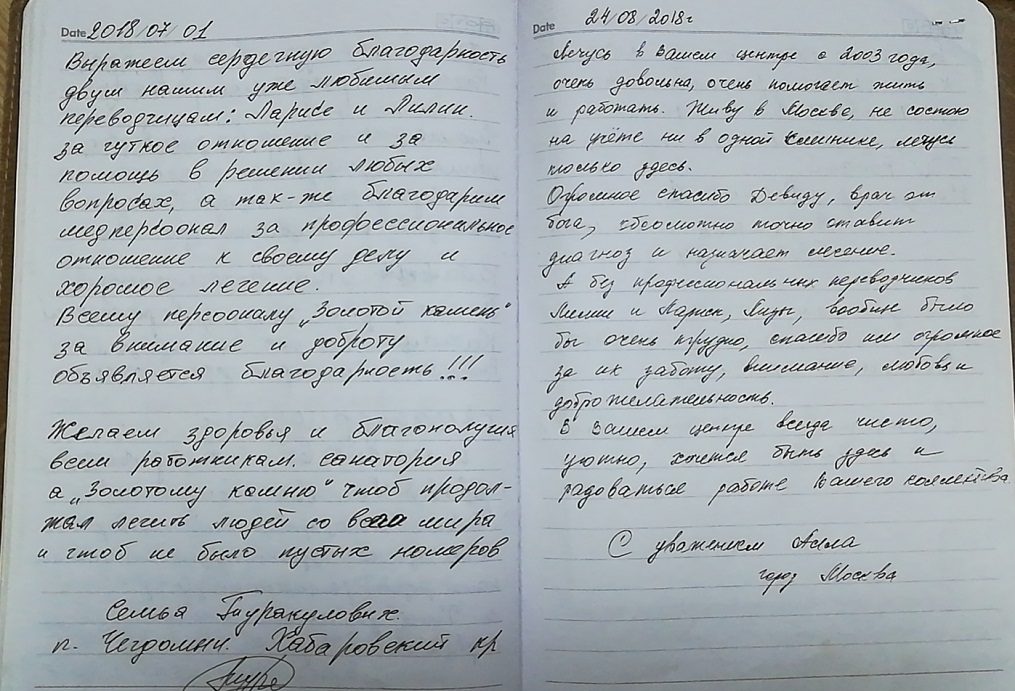 Date 2018/07/01
Выражаем сердечную благодарность
двум нашим уже любимым
переводчицам: Ларисе и Лилии.
за чуткое отношение и за
помощь в решении любых
вопросах, а так-же благодарим
медперсонал за профессиональное
отношение к своему делу и
хорошое лечение.
Всему персоналу „Золотой камень"
за внимание и доброту
объявляется благодарность!!!
Желаем здоровья и благополучия
всем работникам. санатория
а „Золотому камню" чтоб продол-
жал лечить людей со всего мира
и чтоб не было пустых номеров
Семья Туракуловых.
п. Чегдомын. Хабаровский кр
Date 24/08/2018г
Лечусь в Вашем центре с 2003 года,
очень довольна, очень помогает жить
и работать. Живу в Москве, не состою
на учёте ни в одной клинике, лечусь
только здесь.
Огромное спасибо Девиду, врач от
бога, абсолютно точно ставит
диагноз и назначает лечение.
А без профессиональных переводчиков
Лилии и Ларисы, Лизы, вообще было
бы очень трудно, спасибо им огромное
за их заботу, внимание, любовь и
доброжелательность.
В Вашем центре всегда чисто,
уютно, хочется быть здесь и
радоваться работе Вашего коллектива
С уважением Алла
город Москва